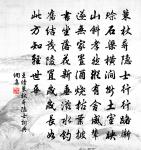 策杖尋隱士行行路漸
賒石梁橫澗斷土室映
山斜孝然縱有舍威輦
遂無家置酒燒枯葉披
書坐落花新垂滋水釣
舊結茂陵罝歲歲長如
此方知輕世華
王績策杖尋隱士